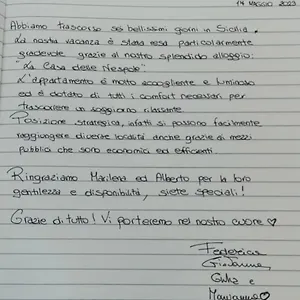 14 MAGGIO 2023
Abbiamo trascorso sei bellissimi giorni in Sicilia.
La nostra vacanza è stata resa particolarmente
gradevole grazie al nostro splendido alloggio:
"La Casa delle Nespole"
L'appartamento è molto accogliente e luminoso
ed è dotato di tutti i comfort necessari per
trascorrere un soggiorno rilassante.
Posizione strategica, infatti si possono facilmente
raggiungere diverse località anche grazie ai mezzi
pubblici che sono economici ed efficienti.
Ringraziamo Marilena ed Alberto per la loro
gentilezza e disponibilità, siete speciali!
Grazie di tutto! Vi porteremo nel nostro cuore ♡
Federica
Giovanna
e
Marianna ♡